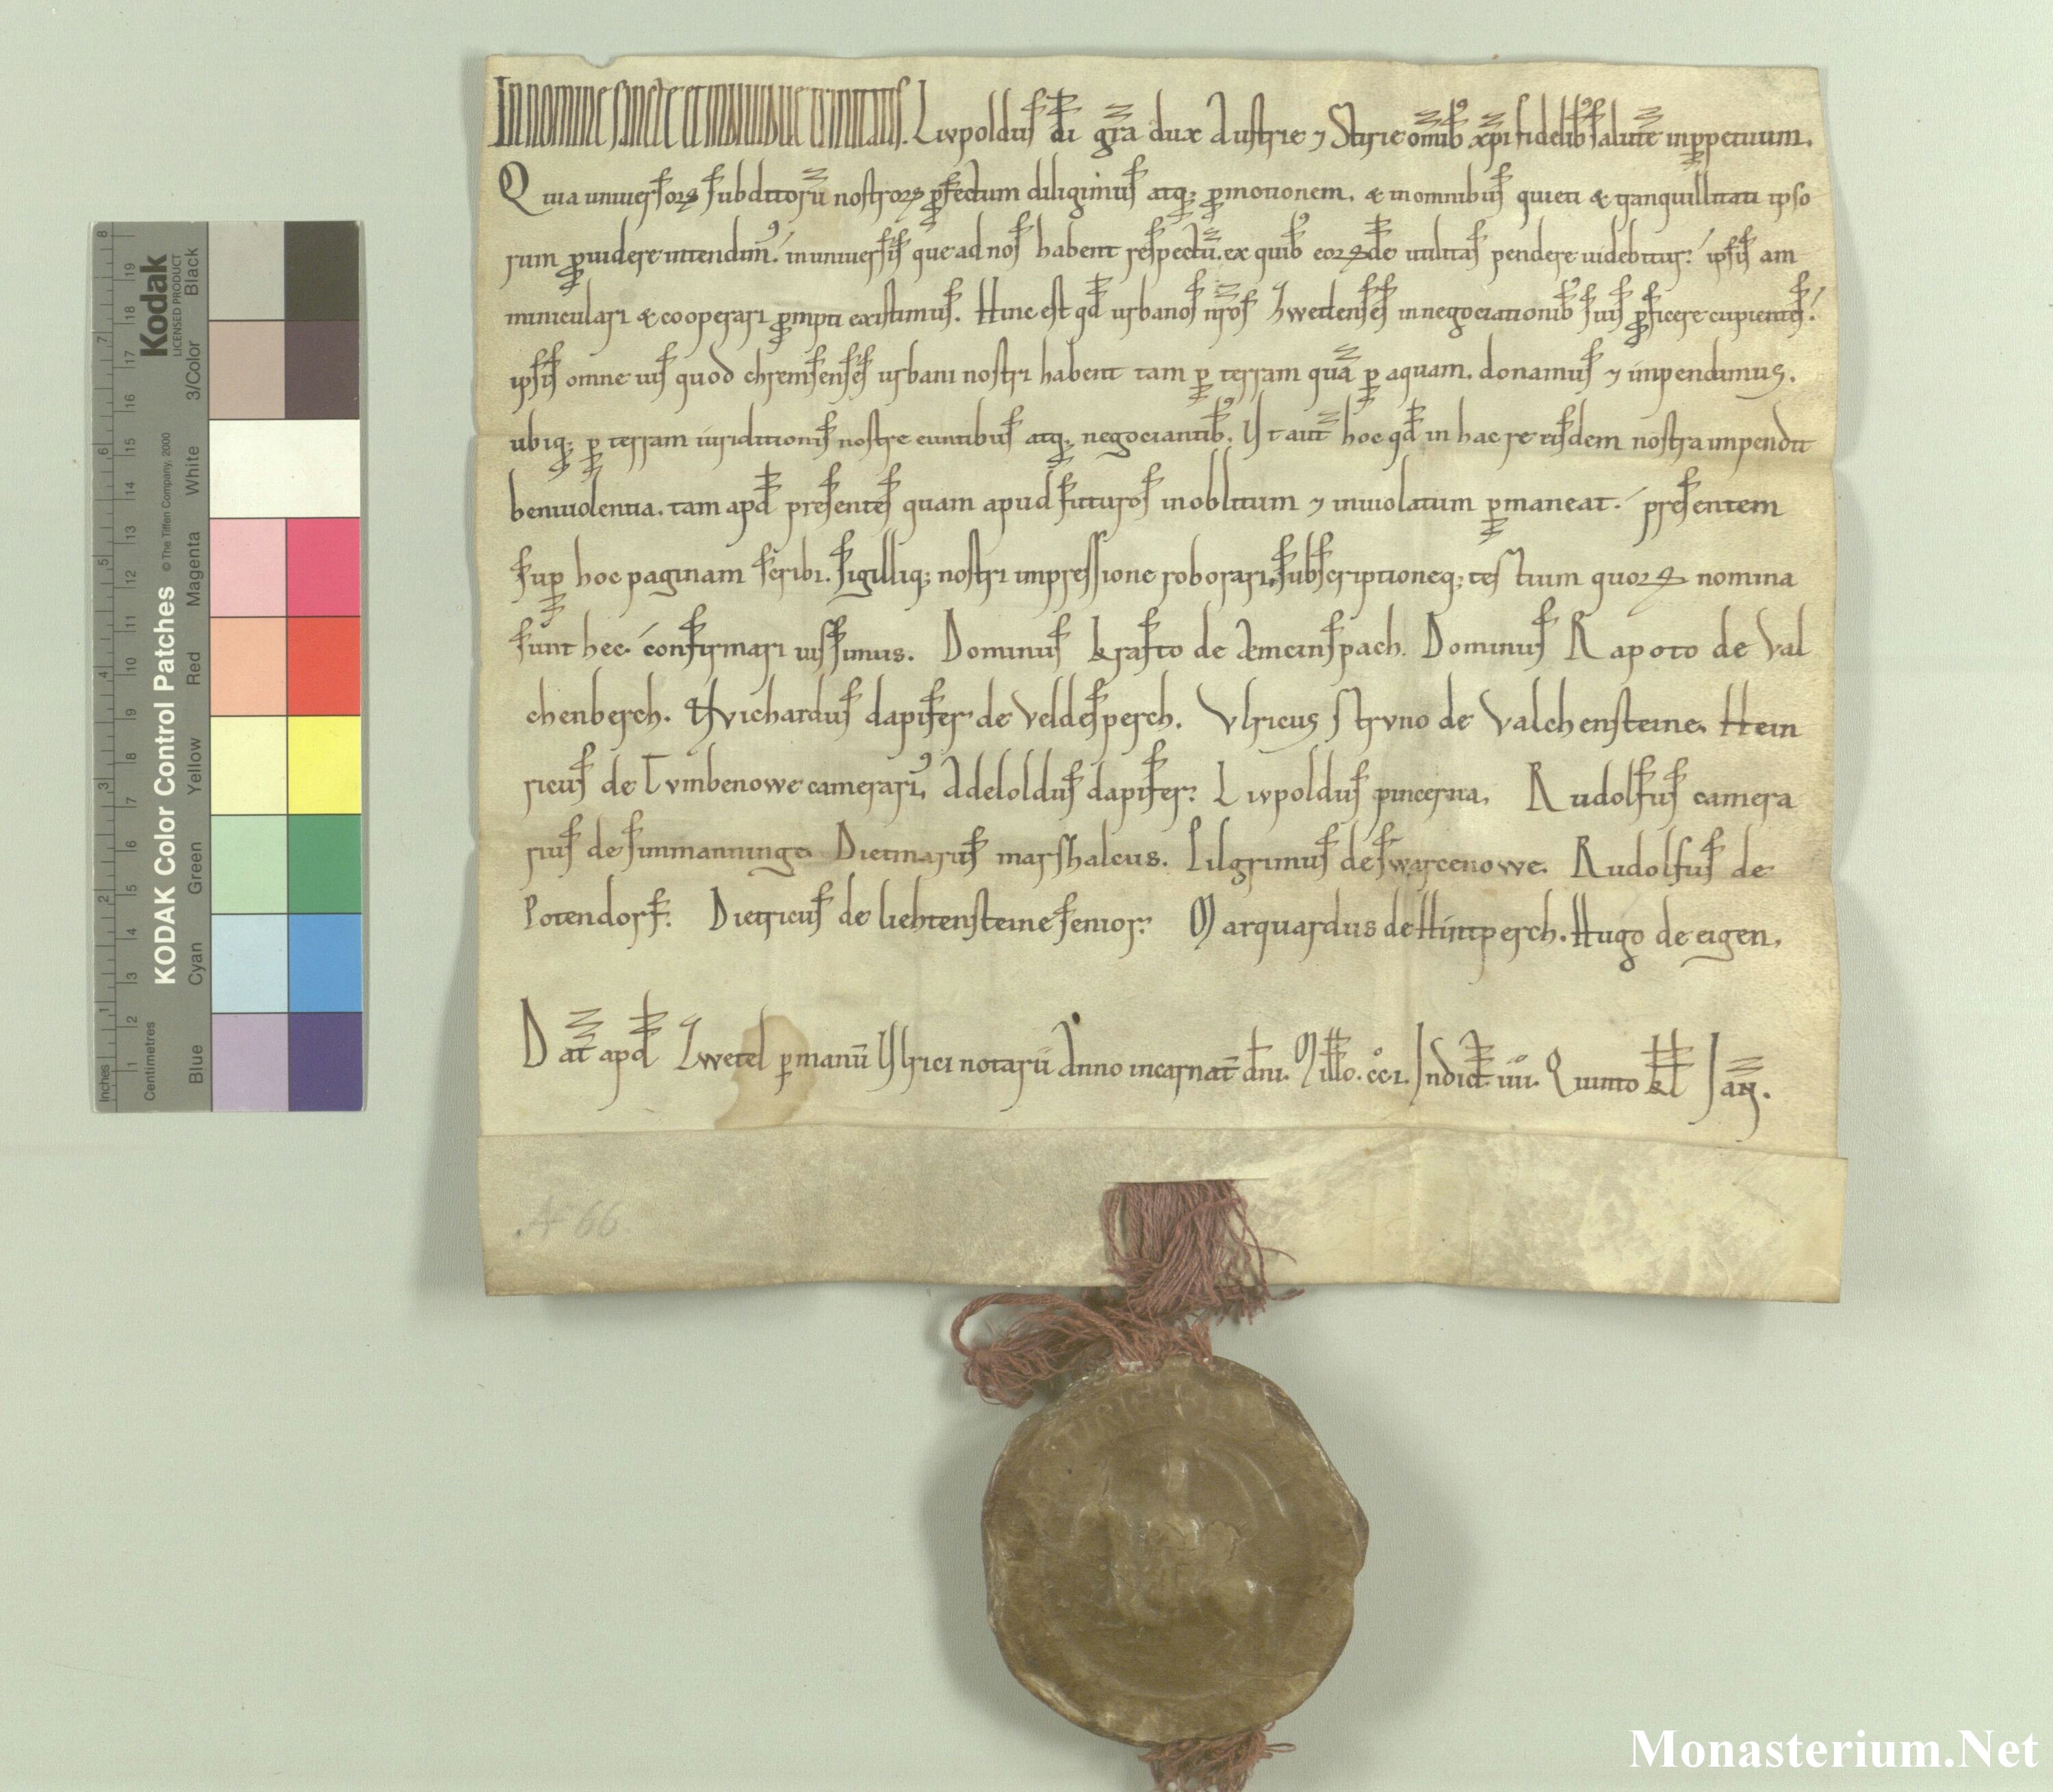 In nomine sancte et individue trinitatis. Livpoldus di gra dux Austrie ⁊ Stirie omib xpi fidelib salute inppetuum.
Quia universorꝝ subditorū nostrorꝝ ꝓfectum diligimus atq; ꝓmotionem. & inomnibus quieti & tranquillitati ipso
rum ꝓvidere intendim᾿. in universis que ad nos habent respectū. ex quib᾿ eorꝝde utilitas pendere videbitur. ipsis am
miniculari & cooperari ꝓmpti existimus. Hinc est qd urbanos nros Zwetlenses innegociationib᾿ suis ꝓficere cupientes.
ipsis omne ius quod chremsenses urbani nostri habent tam ꝑ terram quā ꝑ aquam. donamus ⁊ inpendimus.
ubiq; ꝑ terram iuriditionis nostre euntibus atq; negociantib᾿. Ut aut hoc qd in hac re eisdem nostra inpendit
benivolentia. tam apd presentes quam apud futuros inoblitum ⁊ inviolatum ꝑmaneat. presentem
suꝑ hoc paginam scribi. sigilliq; nostri impressione roborari, subscriptioneq; testium quorꝝ nomina
sunt hec. confirmari iussimus. Dominus krafto de Amcinspach. Dominus Rapoto de Val
chenberch. Wichardus dapifer de Veldesperch. Vlricus strvno de Valchensteine. Hein
ricus de Tvmbenowe camerari᾿. Adeloldus dapifer. Livpoldus pincerna. Rudolfus camera
rius de simmanninge. Dietmarus marshalcus. Pilgrimus de swarcenowe. Rudolfus de
Potendorf. Dietricus de liehtensteine senior. Marquardus de Hintperch. Hugo de eigen.
Dat apd Zwetel ꝑ manū Ulrici notarii Anno incarnat dni. Millo. cc.i. Indict iiii. Quinto kl Jan.
A 66
Kodak
LICENSED PRODUCT
KODAK Color Control Patches
© The Tiffen Company, 2000
Black
3/Color
White
Magenta
Red
Yellow
Green
Cyan
Blue
Inches
Centimetres
Monasterium.Net